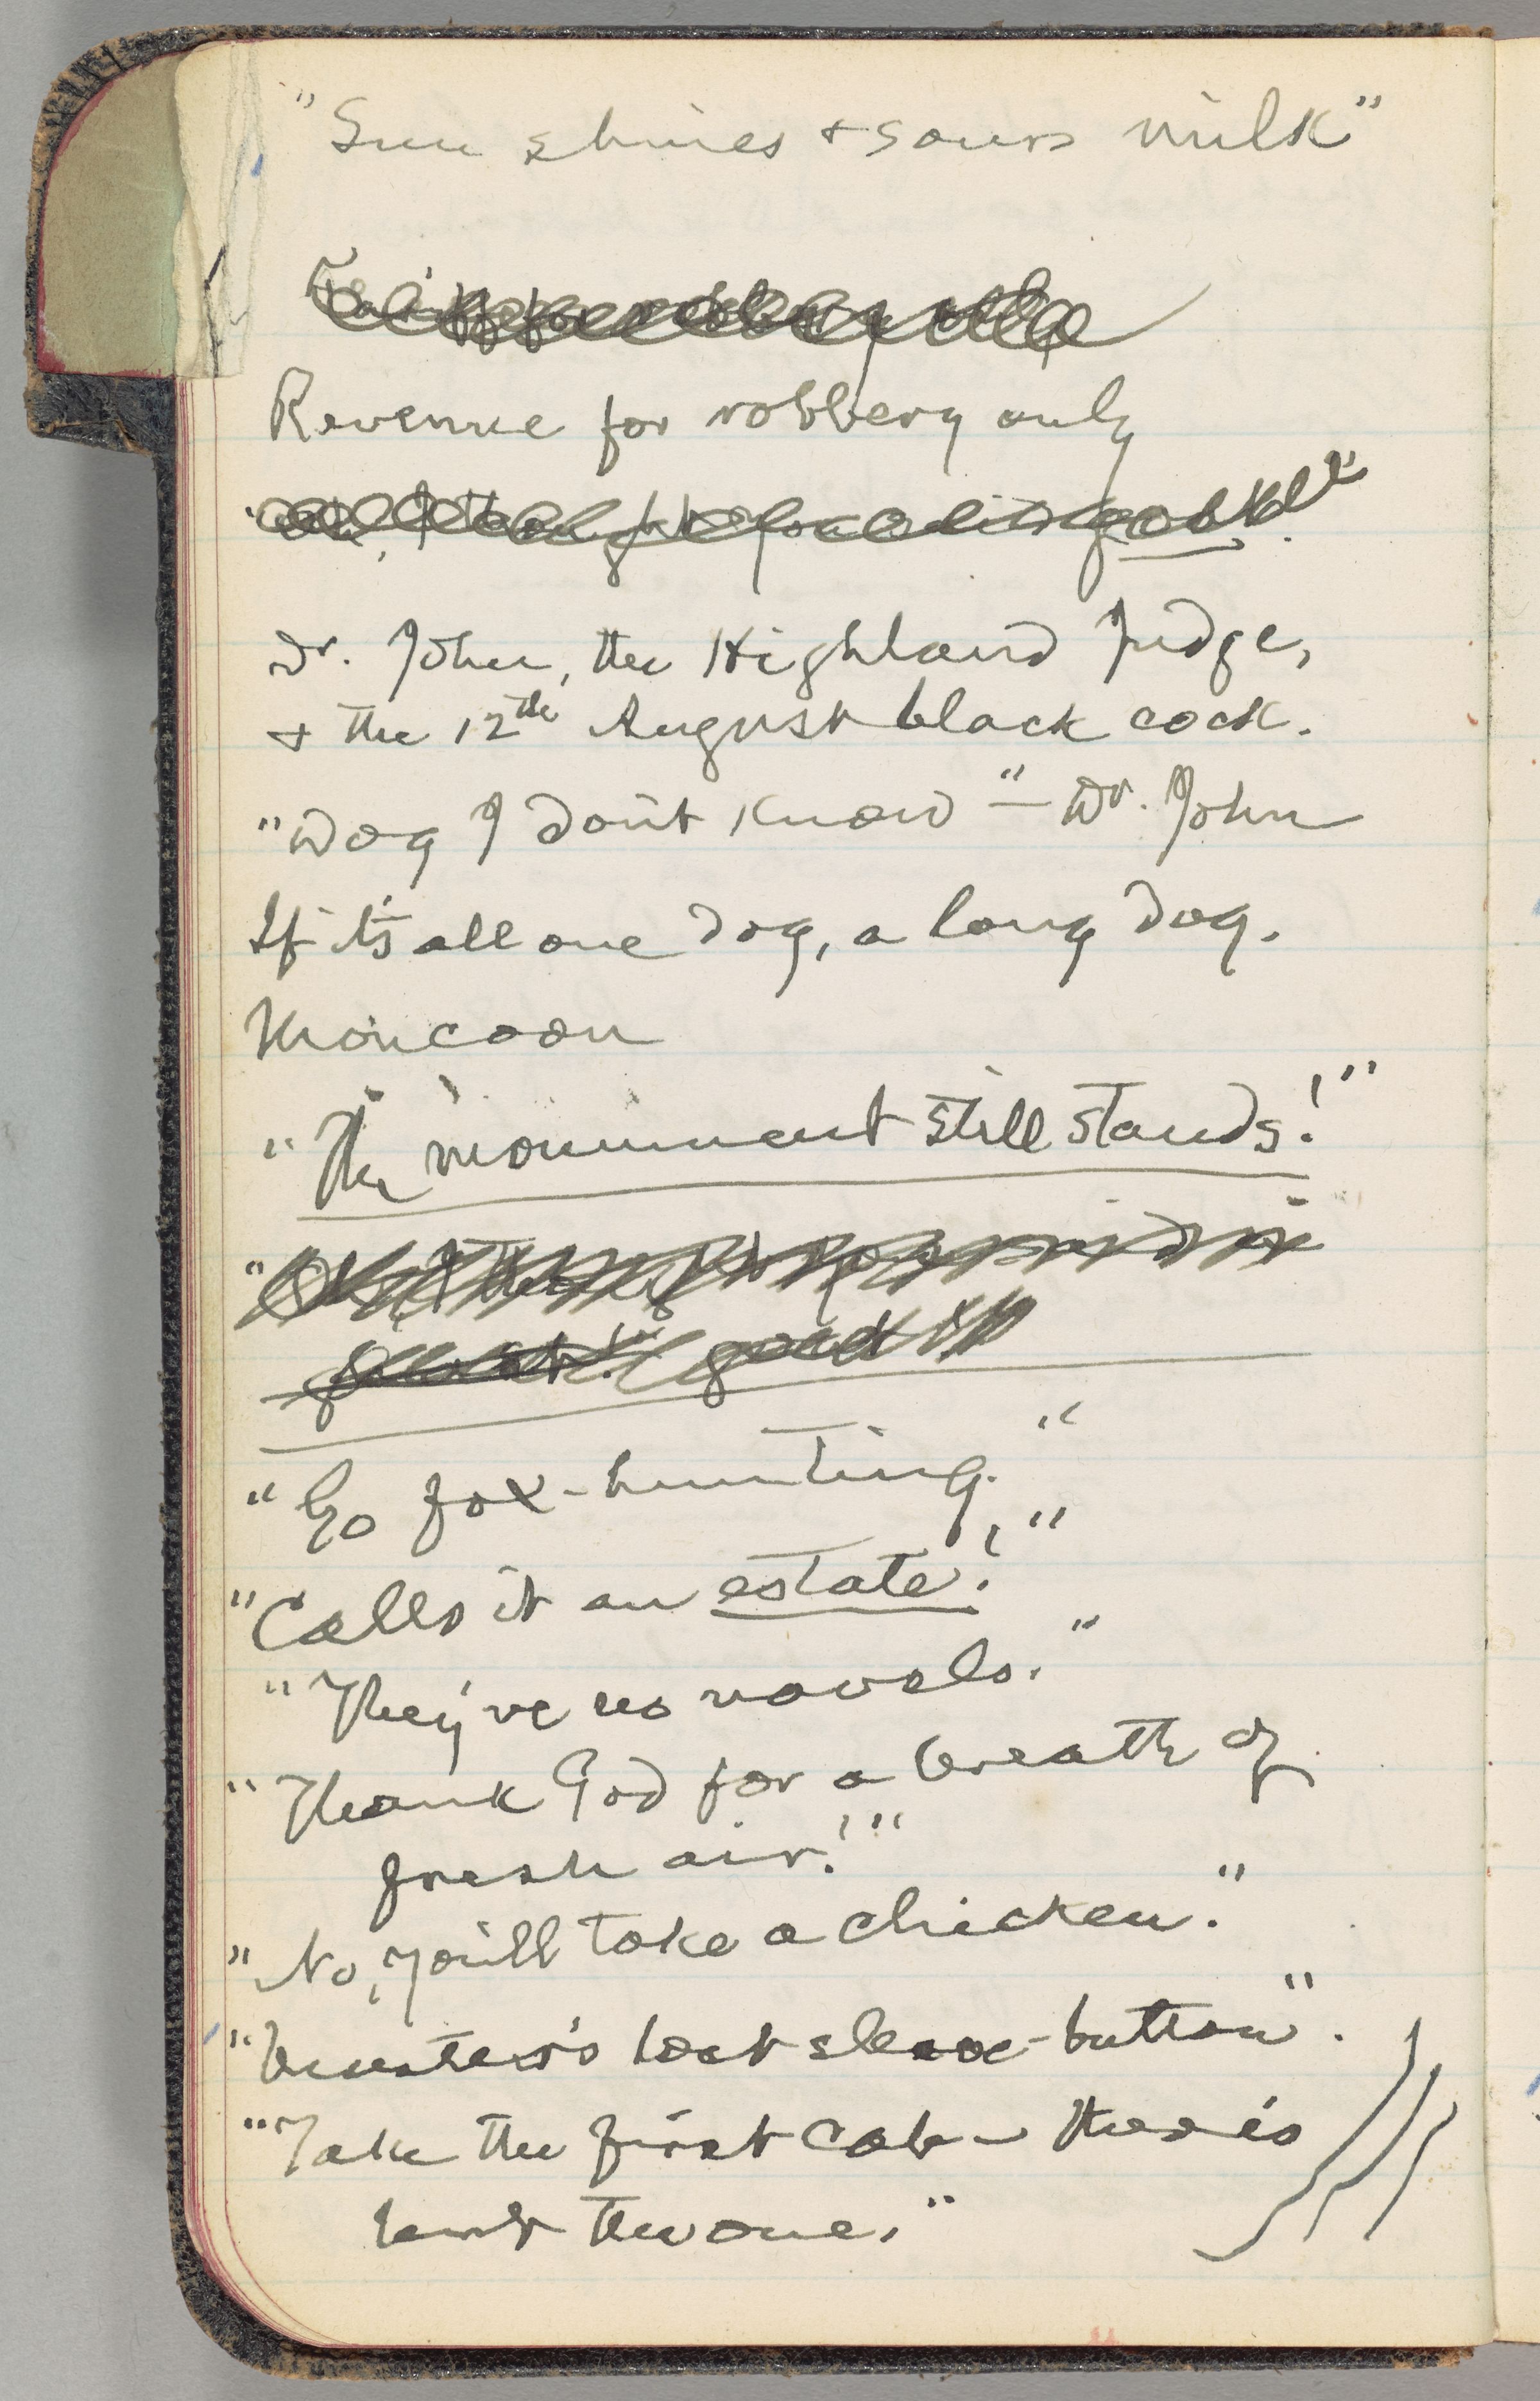 "Sun shines + sours milk"
Revenue for robbery only
Dr. John, the Highland Judge,
+ the 12th August black cock.
"Dog I don't know" – Dr. John
If it's all one dog, a long dog.
"The monument still stands!"
"Go fox-hunting."
"Calls it an estate!"
"They've no vowels."
"Thank God for a breath of
fresh air!"
"No, you'll take a chicken."
lost sleeve-button".
"Take the first cab – there's
but the one."